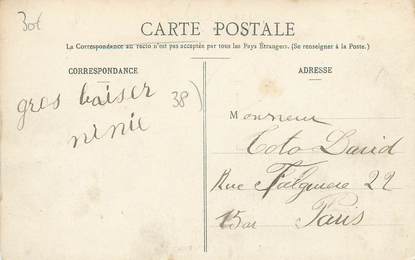 30€
CARTE POSTALE
La Correspondance au recto n'est pas acceptée par tous les Pays Étrangers. (Se renseigner à la Poste.)
CORRESPONDANCE
gros baiser
ninie
38)
ADRESSE
Monsieur
Toto David
Rue Falguiere 22
15ar Paris